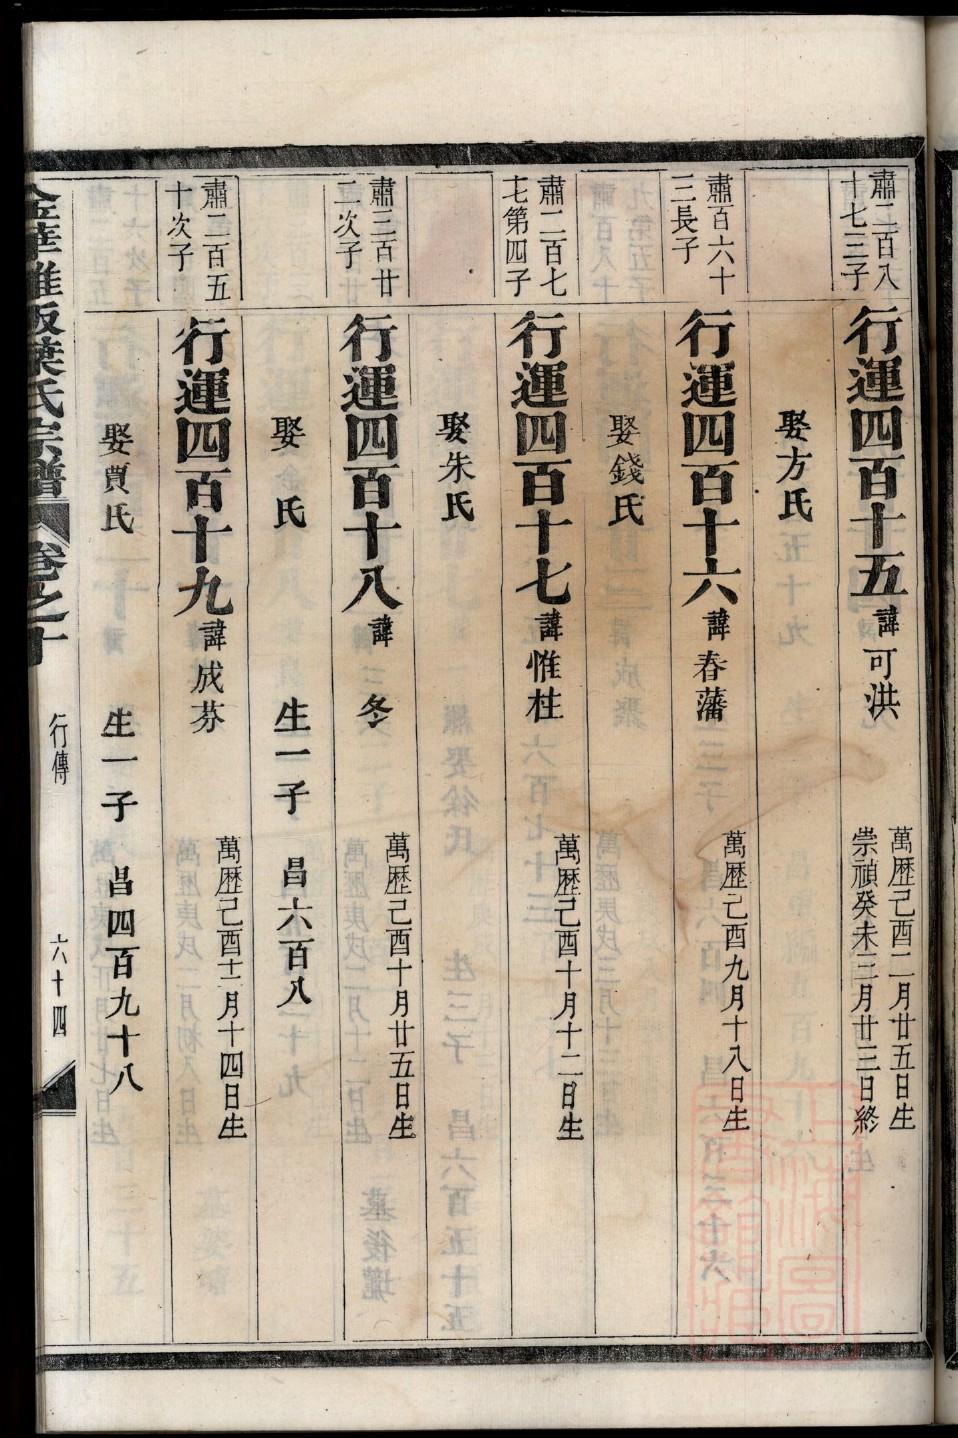 肅二百八
十七三子
行運四百十五 諱可洪 萬歷己酉二月廿五日生
崇禎癸未三月廿三日終
娶方氏
肅百六十
三長子
行運四百十六 諱春藩 萬歷己酉九月十八日生
娶錢氏
肅二百七
七第四子
行運四百十七 諱惟柱 萬歷己酉十月十二日生
娶朱氏
肅三百廿
二次子
行運四百十八 諱冬 萬歷己酉十月廿五日生
娶 氏 生一子 昌六百八
肅二百五
十次子
行運四百十九 諱成芬 萬歷己酉十二月十四日生
娶賈氏 生一子 昌四百九十八
金華 葉氏宗譜 卷之十 行傳 六十四